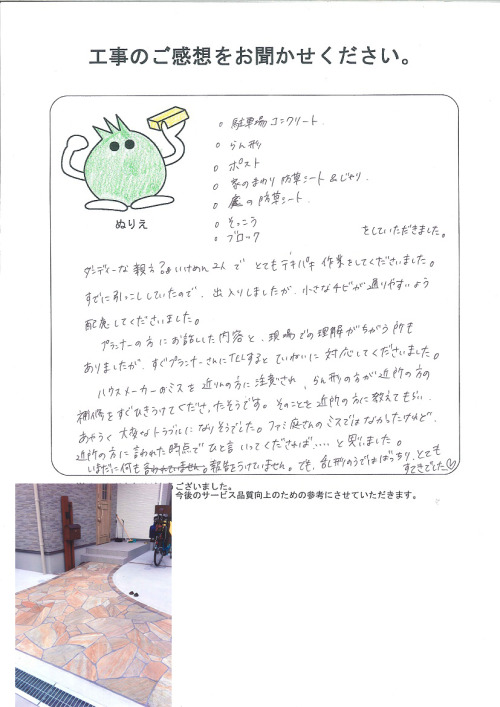 工事のご感想をお聞かせください。
ぬりえ
○ 駐車場コンクリート.
○ らん形
○ ポスト
○ 家のまわり 防草シート&じゃり.
○ 庭の防草シート.
○ そっこう
○ ブロック
をしていただきました。
ダンディーな親方?&いけめん2人で とてもテキパキ作業をしてくださいました。
すでに引っこししていたので、出入りしましたが、小さなチビが通りやすいよう
配慮してくださいました。
プランナーの方にお話しした内容と、現場での理解がちがう所も
ありましたが、すぐプランナーさんにTELするとていねいに対応してくださいました。
ハウスメーカーのミスを近りんの方に注意され、らん形の方が近所の方の
補修をすぐひきうけてくださったそうです。そのことを近所の方に教えてもらい、
あやうく大変なトラブルになりそうでした。ファミ庭さんのミスではなかったけれど、
近所の方に言われた時点でひと言いってくだされば・・・・と思いました。
いまだに何も 報告をうけていません。でも、乱形のうではばっちり、とても
すてきでした♡
ございました。
今後のサービス品質向上のための参考にさせていただきます。